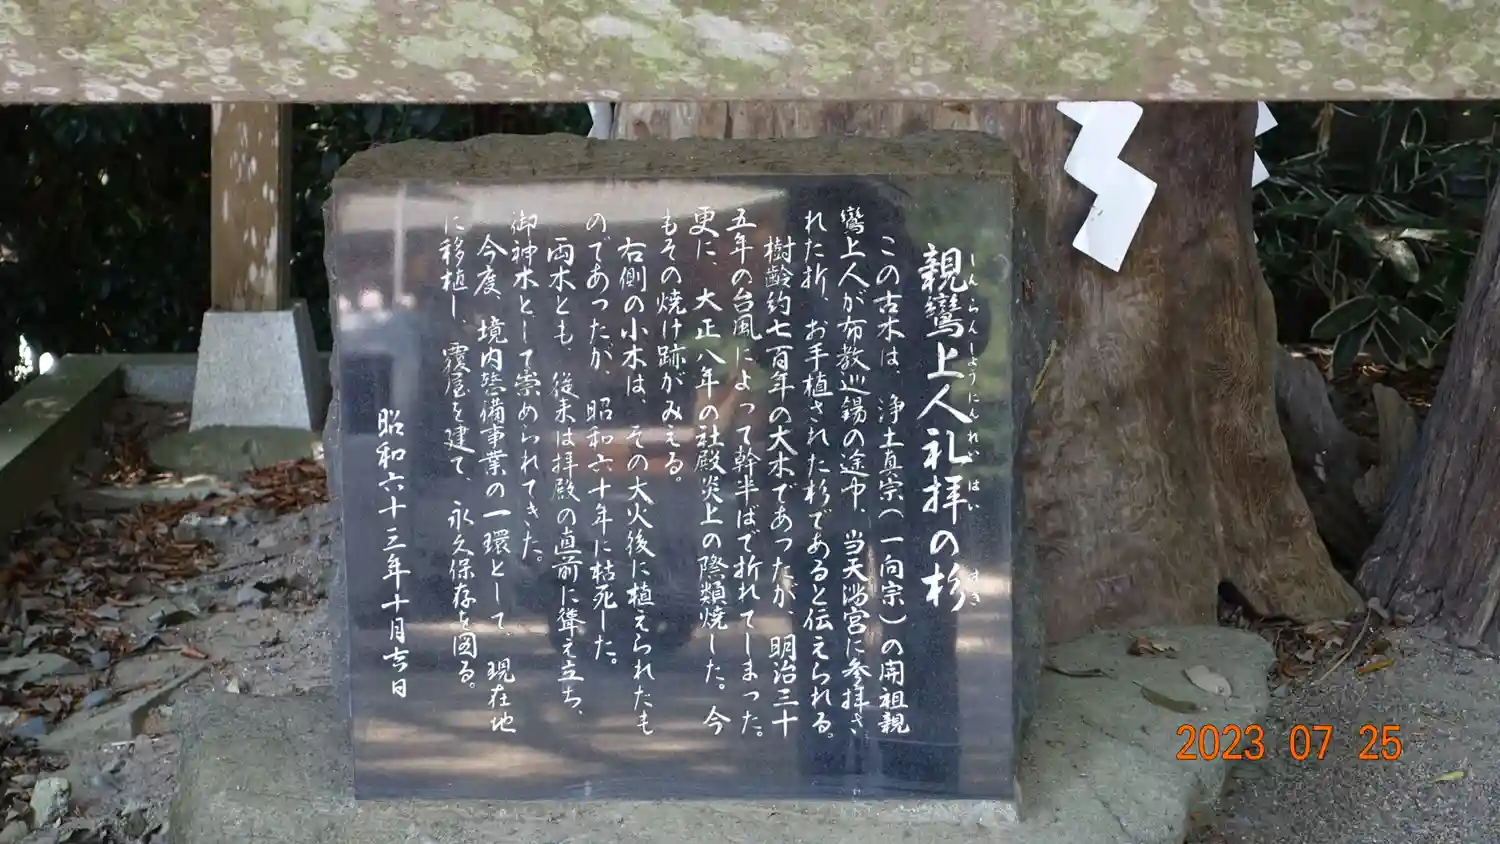 親鸞上人礼拝の杉
しんらんしょうにんれいはい すぎ
この古木は、浄土真宗（一向宗）の開祖親
鸞上人が布教巡錫の途中、当天満宮に参拝さ
れた折、お手植された杉であると伝えられる。
樹齢約七百年の大木であったが、明治三十
五年の台風によって幹半ばで折れてしまった。
更に、大正八年の社殿炎上の際類焼した。今
もその焼け跡がみえる。
右側の小木は、その大火後に植えられたも
のであったが、昭和六十年に枯死した。
両木とも、従来は拝殿の直前に聳え立ち、
御神木として崇められてきた。
今度、境内整備事業の一環として、現在地
に移植し、覆屋を建て、永久保存を図る。
昭和六十三年十月吉日
2023 07 25